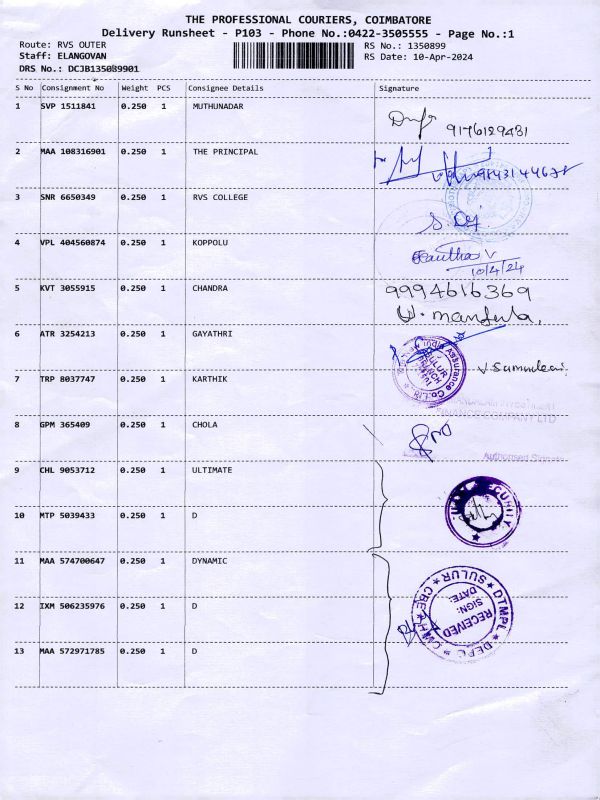 THE PROFESSIONAL COURIERS, COIMBATORE
Delivery Runsheet - P103 - Phone No.:0422-3505555 - Page No.:1
Route: RVS OUTER RS No.: 1350899
Staff: ELANGOVAN RS Date: 10-Apr-2024
DRS No.: DCJB135089901
S No Consignment No Weight PCS Consignee Details Signature
1 SVP 1511841 0.250 1 MUTHUNADAR
9176129431
2 MAA 108316901 0.250 1 THE PRINCIPAL
3 SNR 6650349 0.250 1 RVS COLLEGE
4 VPL 404560874 0.250 1 KOPPOLU
10/4/24
5 KVT 3055915 0.250 1 CHANDRA 9994616369
6 ATR 3254213 0.250 1 GAYATHRI
India Assurance Co. Ltd.
SULUR
BRANCH
7 TRP 8037747 0.250 1 KARTHIK
COMPANY LTD
8 GPM 365409 0.250 1 CHOLA
Authorised
9 CHL 9053712 0.250 1 ULTIMATE
SECURITY
10 MTP 5039433 0.250 1 D
11 MAA 574700647 0.250 1 DYNAMIC
12 IXM 506235976 0.250 1 D
DTMPL SULUR CBE
RECEIVED
SIGN:
DATE:
13 MAA 572971785 0.250 1 D